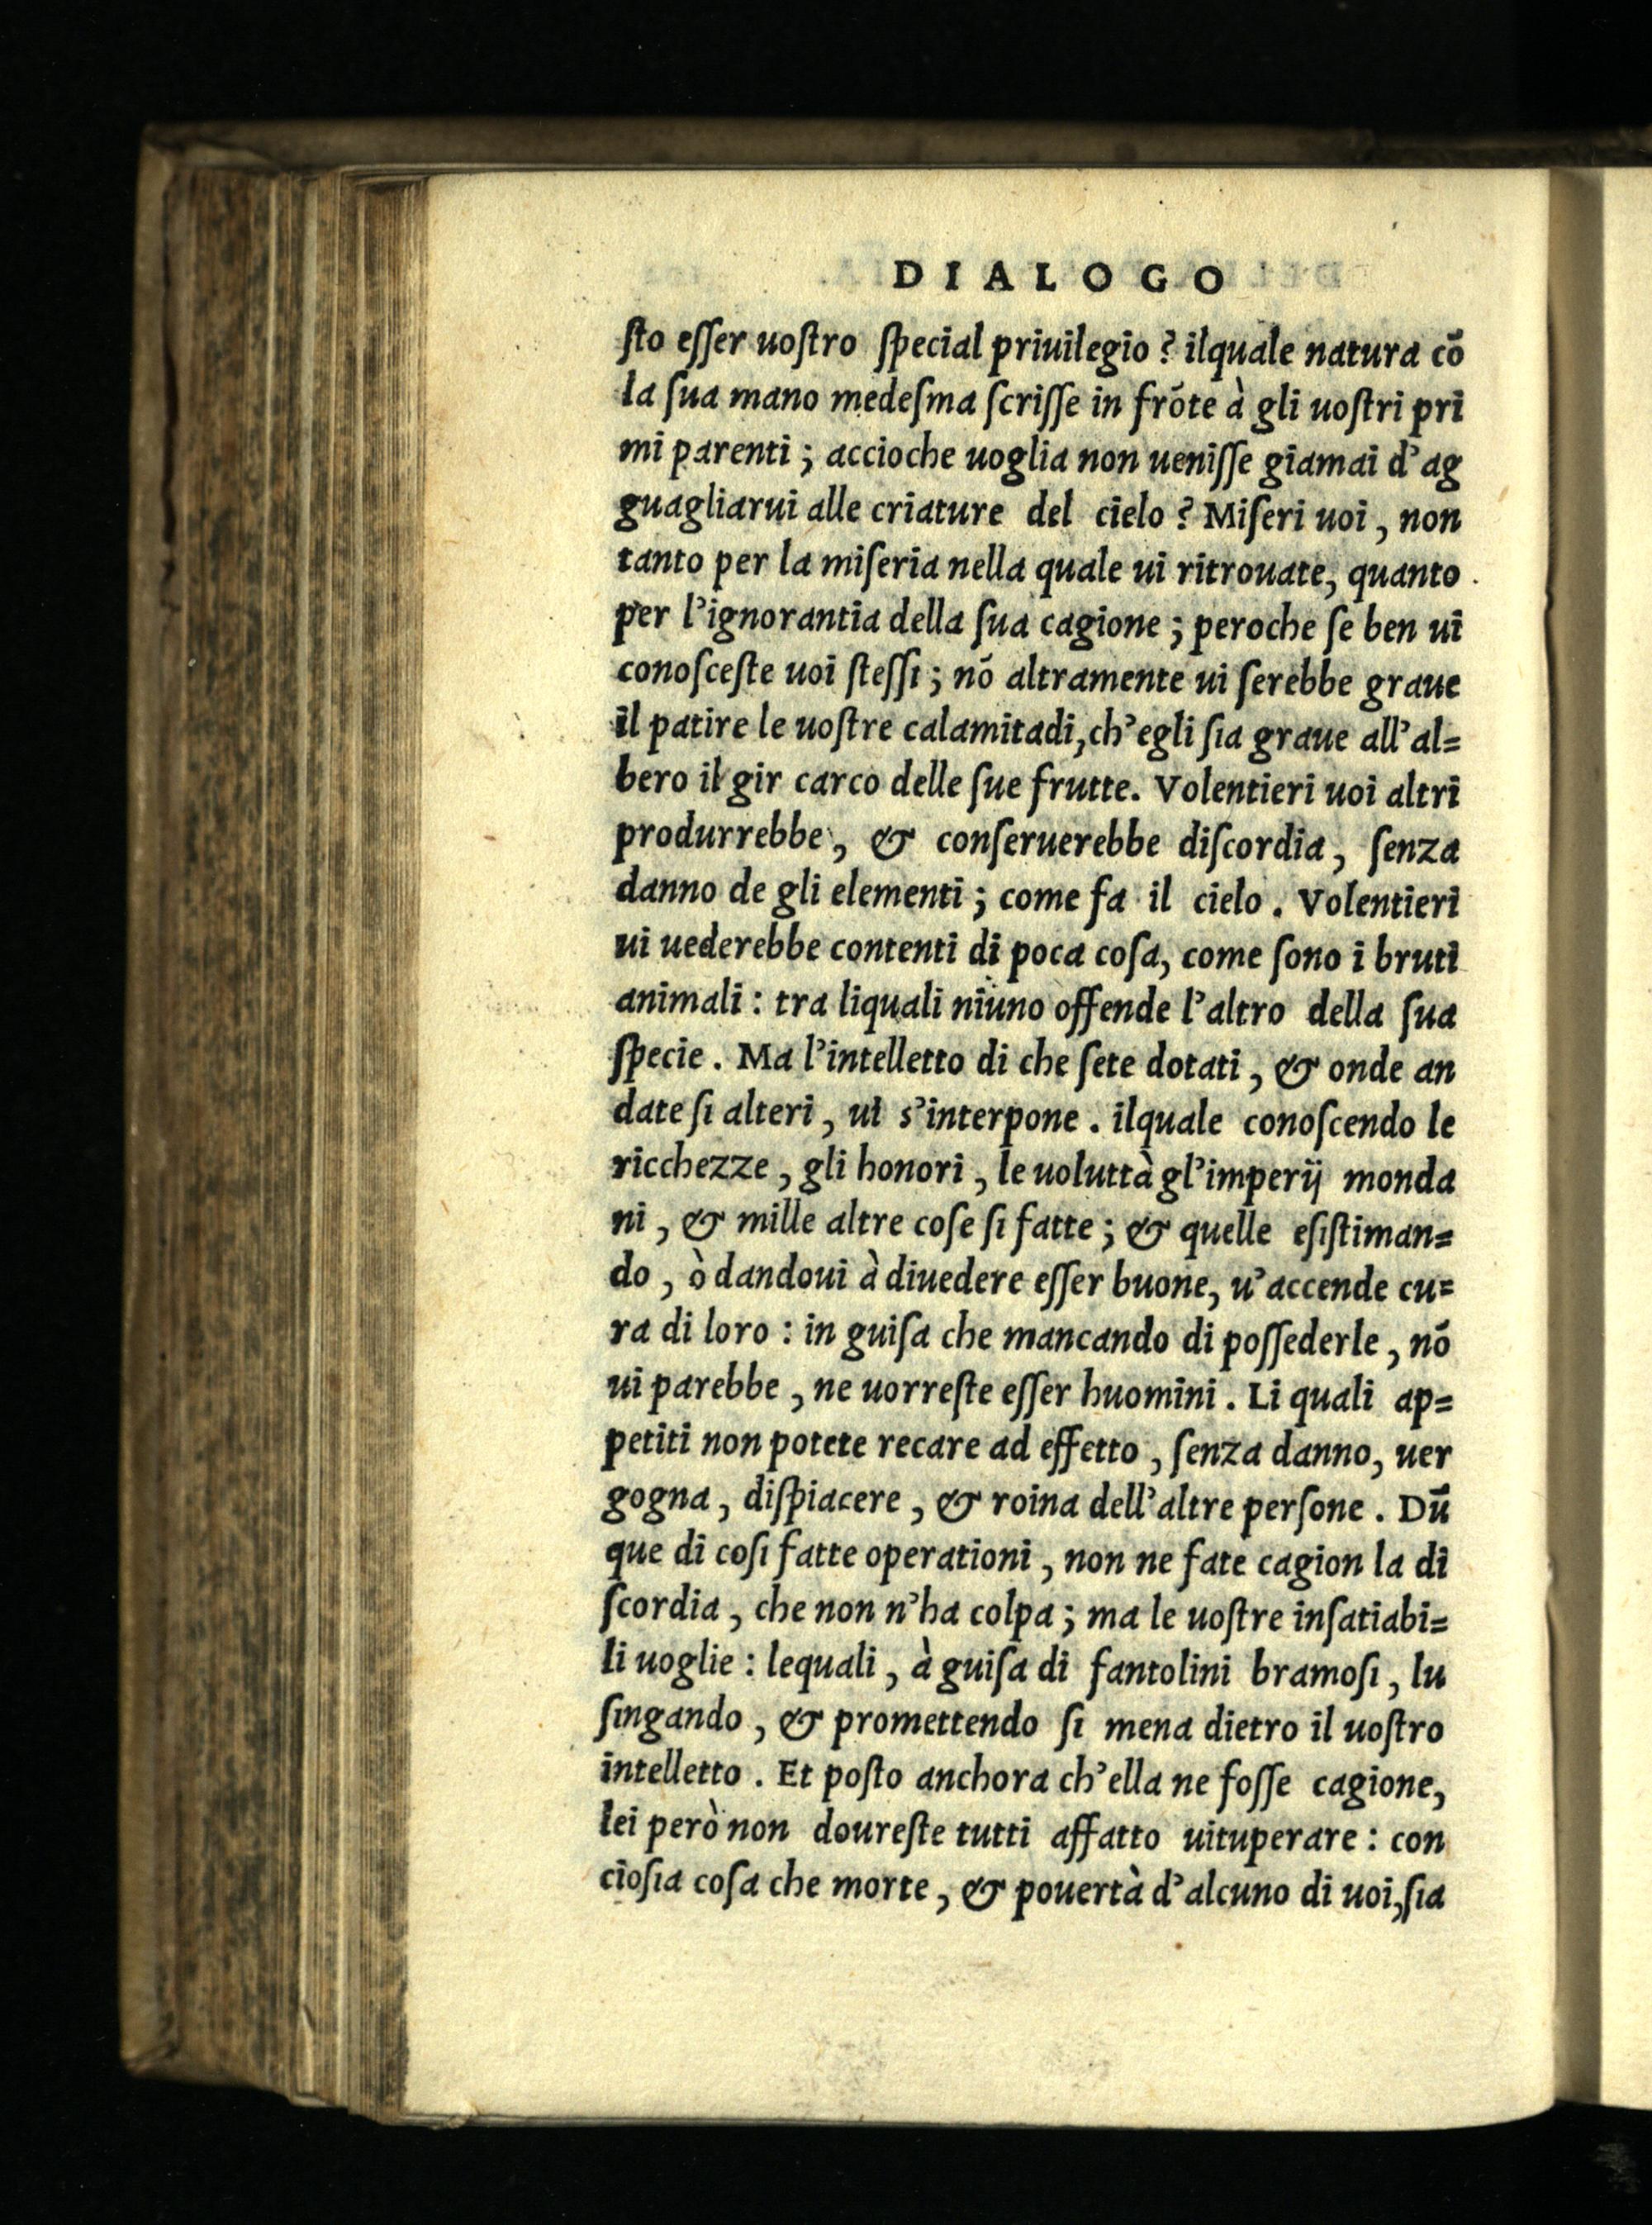 DIALOGO
ſto eſſer uoſtro ſpecial priuilegio? ilquale natura cõ
la ſua mano medeſma ſcriſſe in frõte à gli uoſtri pri
mi parenti; accioche uoglia non ueniſſe giamai d'ag
guagliarui alle criature del cielo? Miſeri uoi, non
tanto per la miſeria nella quale ui ritrouate, quanto
per l'ignorantia della ſua cagione; peroche ſe ben ui
conoſceſte uoi ſteſſi; nõ altramente ui ſerebbe graue
il patire le uoſtre calamitadi, ch'egli ſia graue all'al=
bero il gir carco delle ſue frutte. Volentieri uoi altri
produrrebbe, & conſeruerebbe diſcordia, ſenza
danno de gli elementi; come fa il cielo. Volentieri
ui uederebbe contenti di poca coſa, come ſono i bruti
animali: tra liquali niuno offende l'altro della ſua
ſpecie. Ma l'intelletto di che ſete dotati, & onde an
date ſi alteri, ui s'interpone. ilquale conoſcendo le
ricchezze, gli honori, le uoluttà gl'imperij monda
ni, & mille altre coſe ſi fatte; & quelle eſiſtiman=
do, ò dandoui à diuedere eſſer buone, u'accende cu=
ra di loro: in guiſa che mancando di poſſederle, nõ
ui parebbe, ne uorreſte eſſer huomini. Li quali ap=
petiti non potete recare ad effetto, ſenza danno, uer
gogna, diſpiacere, & roina dell'altre perſone. Dũ
que di coſi fatte operationi, non ne fate cagion la di
ſcordia, che non n'ha colpa; ma le uoſtre inſatiabi=
li uoglie: lequali, à guiſa di fantolini bramoſi, lu
ſingando, & promettendo ſi mena dietro il uoſtro
intelletto. Et poſto anchora ch'ella ne foſſe cagione,
lei però non doureſte tutti affatto uituperare: con
cioſia coſa che morte, & pouertà d'alcuno di uoi, ſia